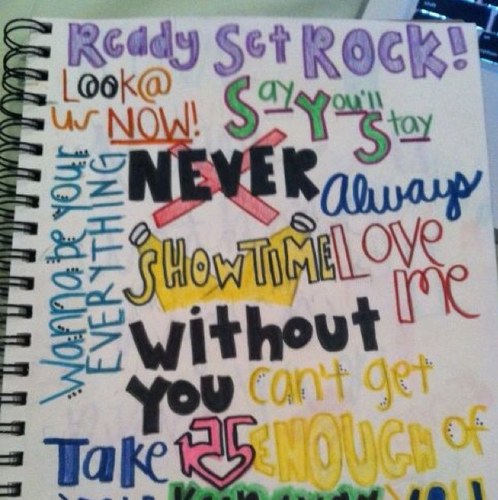 Ready Set ROCK!
Look@
us NOW!
Say You'll
Stay
Wanna be your
EVERYTHING
NEVER
Always
SHOWTIME
LOVE
me
without
you
can't get
ENOUGH of
Take
25
you